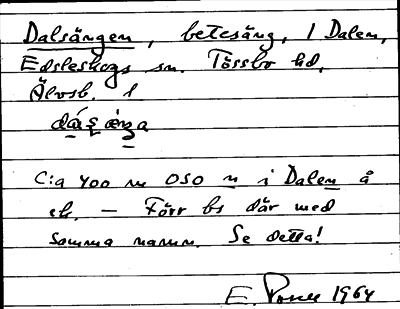 Dalsängen, betesäng, i Dalen,
Edsleskogs sn. Tössbo hd,
Älvsb. l
C:a 400 m OSO n i Dalen å
ek. — Förr bs där med
samma namn. Se detta!
E. 1964